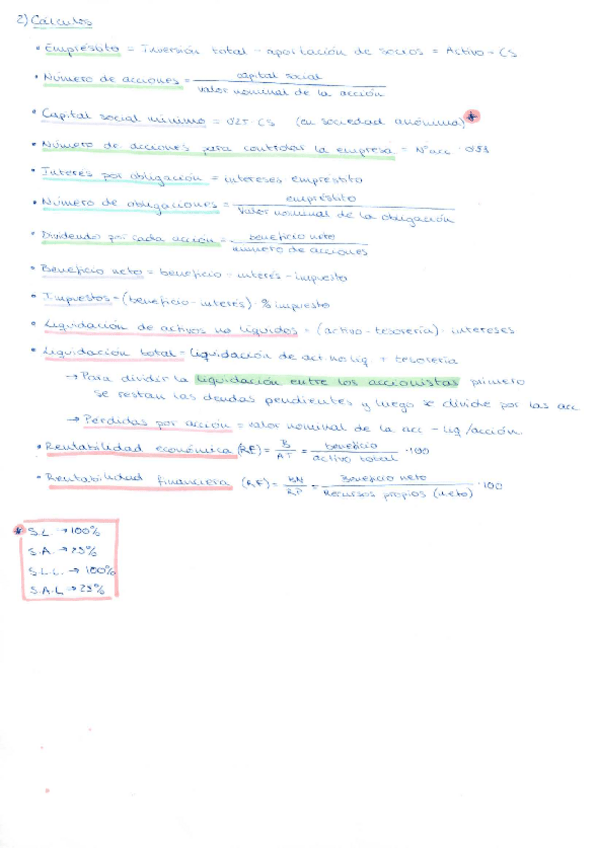 2) Cálculos
• Empréstito = Inversión total - aportación de socios = Activo - CS
• Número de acciones = capital social / valor nominal de la acción
• Capital social mínimo = 0'25 · CS (en sociedad anónima) *
• Número de acciones para controlar la empresa = Nº acc ·
• Interés por obligación = intereses empréstito
• Número de obligaciones = empréstito / valor nominal de la obligación
• Dividendo por cada acción = beneficio neto / número de acciones
• Beneficio neto = beneficio - interés - impuesto
• Impuestos = (beneficio - interés) · % impuesto
• Liquidación de activos no líquidos = (activo - tesorería) · intereses
• Liquidación total = liquidación de act. no liq + tesorería
→ Para dividir la liquidación entre los accionistas primero
se restan las deudas pendientes y luego se divide por las acc
→ Pérdidas por acción = valor nominal de la acc - liq/acción.
• Rentabilidad económica (RE) = B / AT = beneficio / activo total · 100
• Rentabilidad financiera (RF) = BN / RP = Beneficio neto / Recursos propios (neto) · 100
* S.L. → 100%
S.A. → 25%
S.L.L. → 100%
S.A.L → 25%